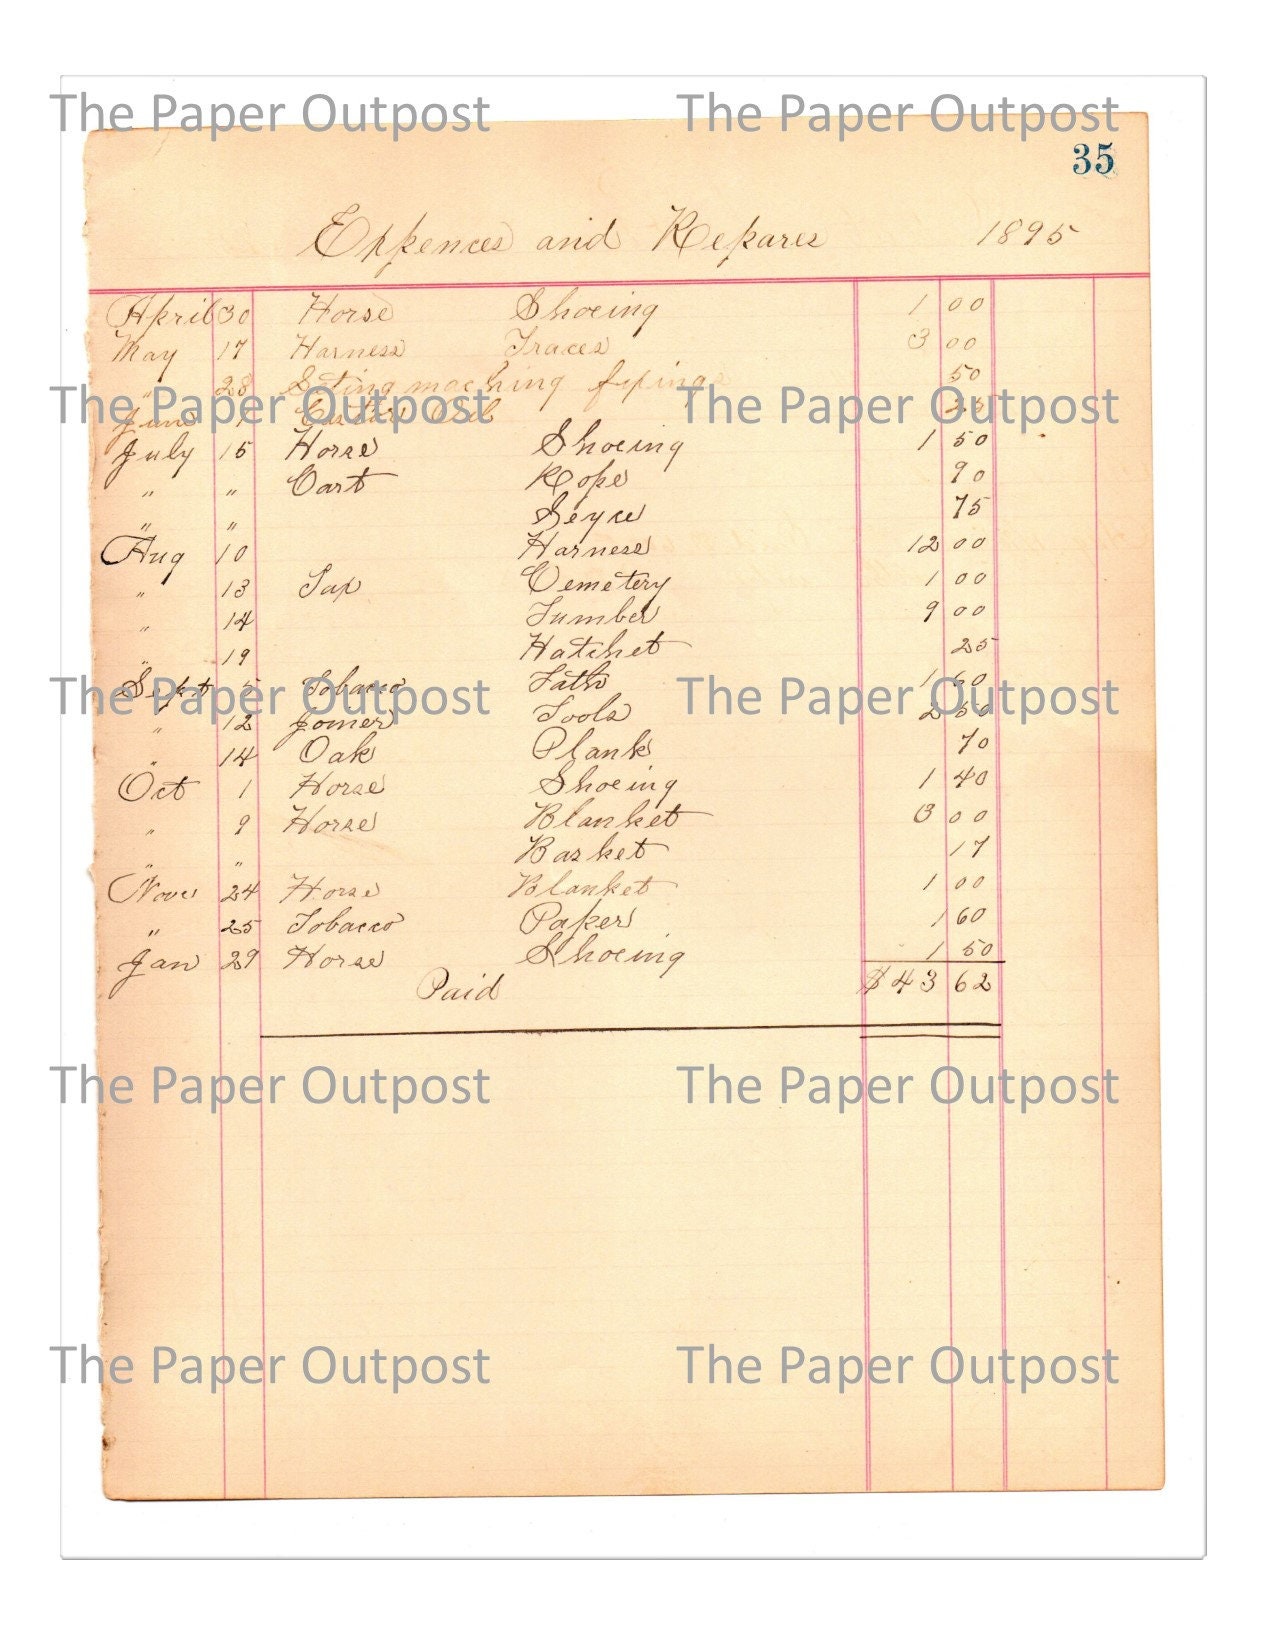 The Paper Outpost The Paper Outpost
35
Expences and Repares 1895
April 30 Horse Shoeing 1 00
May 17 Harness Traces 3 00
" 28 Seting maching fixings 50
The Paper Outpost The Paper Outpost
June 1 Castor Oil 25
July 15 Horse Shoeing 1 50
" " Cart Rope 90
" " Seyce 75
Aug 10 Harness 12 00
" 13 Tax Cemetery 1 00
" 14 Lumber 9 00
" 19 Hatchet 25
Sept 5 Tobacco Lath 1 60
The Paper Outpost The Paper Outpost
" 12 Joiner Tools 2 50
" 14 Oak Plank 70
Oct 1 Horse Shoeing 1 40
" 9 Horse Blanket 3 00
" " Basket 17
Nove 24 Horse Blanket 1 00
" 25 Tobacco Paper 1 60
Jan 29 Horse Shoeing 1 50
Paid $43 62
The Paper Outpost The Paper Outpost
The Paper Outpost The Paper Outpost